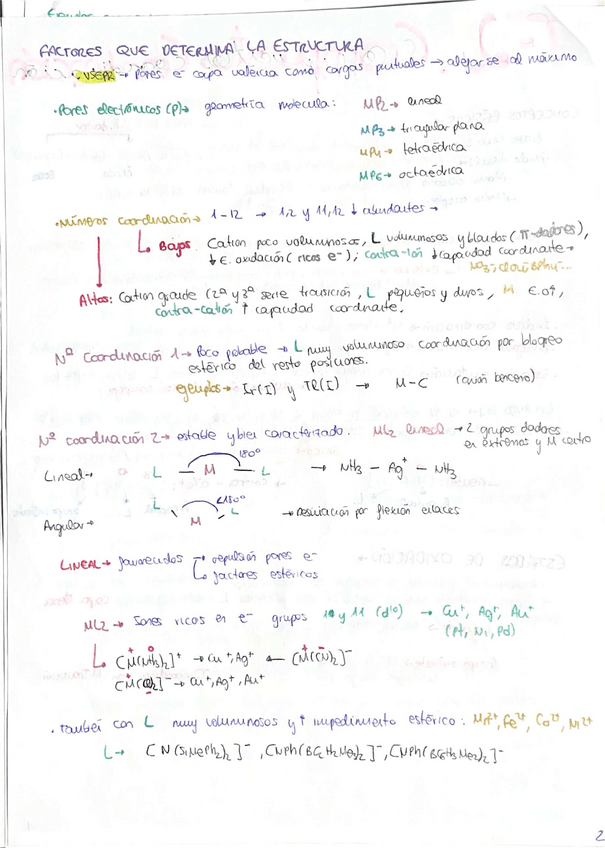 FACTORES QUE DETERMINA LA ESTRUCTURA
· VSEPR → Pares e⁻ capa valencia como cargas puntuales → alejarse al máximo
· Pares electrónicos (P) → geometría molecular: MP2 → lineal
MP3 → triangular plana
MP4 → tetraédrica
MP6 → octaédrica
· Números coordinación → 1-12 → 1,2 y 11,12 ↓ abundantes →
↳ Bajos: Cation poco voluminosos, L voluminosos y blandos (π-dadores),
↓ E. oxidación (ricos e⁻); contra-ión ↓ capacidad coordinante →
Altos: Cation grande (2ª y 3ª serie transición, L pequeños y duros, M E.O↑,
contra-catión ↑ capacidad coordinante.
Nº coordinación 1 → Poco probable → L muy voluminoso coordinación por bloqueo
estérico del resto posiciones.
ejemplos → In(I) y Tl(I) → M-C (anión benceno)
Nº coordinación 2 → estable y bien caracterizado. ML2 lineal → 2 grupos dadores
en extremos y M centro
Lineal → L — M — L 180º → NH3 — Ag⁺ — NH3
Angular → L M L <180º → Desviación por flexión enlaces
LINEAL → favorecidos → repulsión pares e⁻
↳ factores estéricos
ML2 → Iones ricos en e⁻ grupos 10 y 11 (d¹⁰) → Cu⁺, Ag⁺, Au⁺
(Pt, Ni, Pd)
↳ [M(NH3)2]⁺ → Cu⁺, Ag⁺ ← [M(CN)2]⁻
[MCl2]⁻ → Cu⁺, Ag⁺, Au⁺
· También con L muy voluminosos y ↑ impedimento estérico: Mn²⁺, Fe²⁺, Co²⁺, Ni²⁺
L → [N(SiMePh2)2]⁻, [NPh(BC6H2Me3)2]⁻, [NPh(BC6H3Me2)2]⁻
2